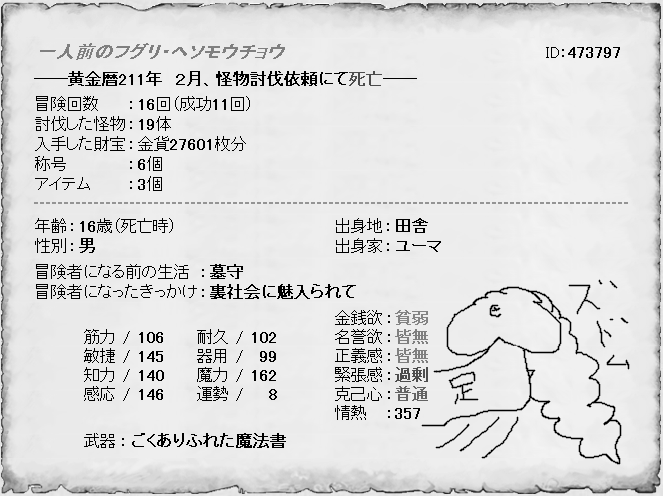 一人前のフグリ・ヘソモウチョウ
ID:473797
――黄金暦211年 2月、怪物討伐依頼にて死亡――
冒険回数 :16回(成功11回)
討伐した怪物:19体
入手した財宝:金貨27601枚分
称号 :6個
アイテム :3個
年齢:16歳(死亡時) 出身地:田舎
性別:男 出身家:ユーマ
冒険者になる前の生活 :墓守
冒険者になったきっかけ:裏社会に魅入られて
筋力 / 106 耐久 / 102
敏捷 / 145 器用 / 99
知力 / 140 魔力 / 162
感応 / 146 運勢 / 8
武器:ごくありふれた魔法書
金銭欲:貧弱
名誉欲:皆無
正義感:皆無
緊張感:過剰
克己心:普通
情熱 :357
ズドドム
足